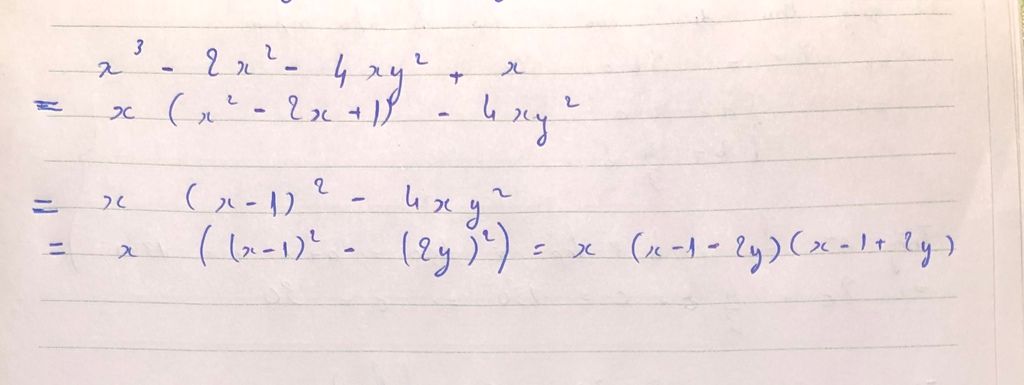 x³ - 2x² - 4xy² + x
= x (x² - 2x + 1) - 4xy²
= x (x-1)² - 4xy²
= x ((x-1)² - (2y)²) = x (x-1-2y)(x-1+2y)